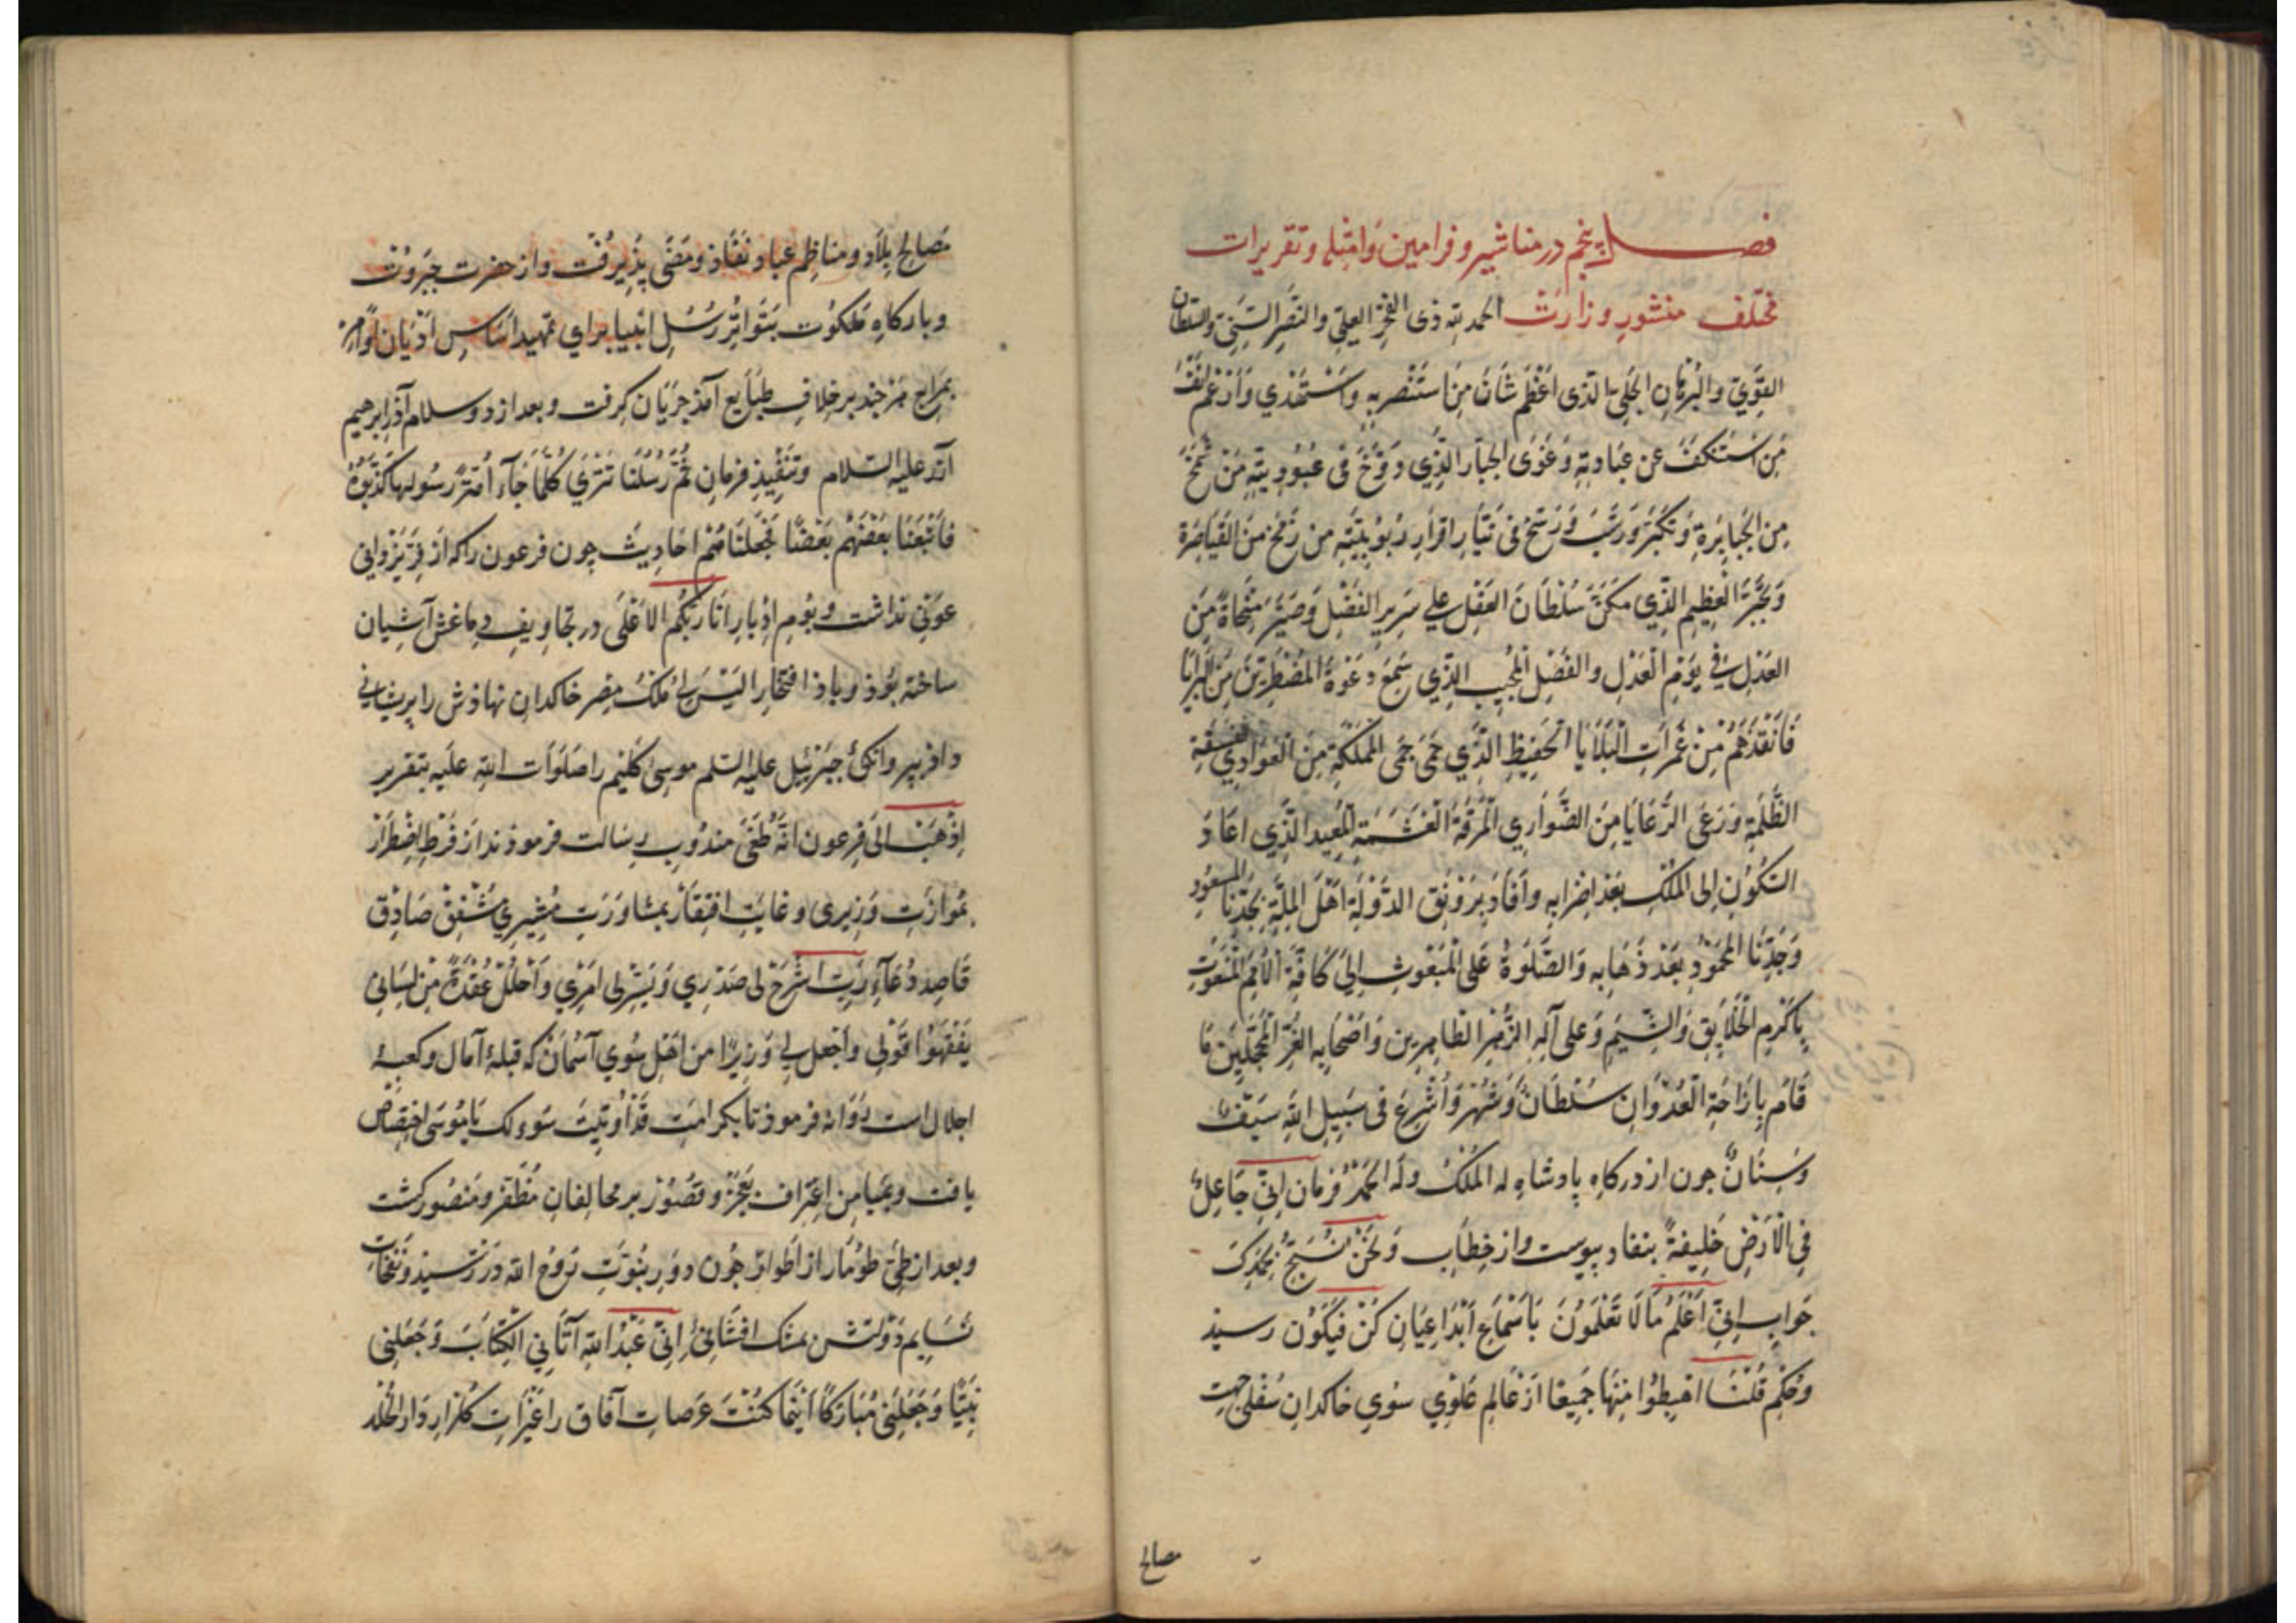 فصل پنجم در مناشیر و فرامین و امثله و تقریرات
مختلف منشور وزارت الحمد لله ذی الفخر العلی والنصر السنی والسلطان
القوی والبرهان الجلی الذی اعظم شان من استنصر به واستخذی وارغم انف
من استنکف عن عبادته وغوی الجبار الذی دوخ فی عبودیته من شمخ
من الجبابرة وتکبر ورسخ فی تیار اقرار ربوبیته من زمخ من القیاصرة
وتجبر العظیم الذی مکن سلطان العقل علی سریر الفضل وصیر منحاة من
العدل فی یوم العدل والفضل المجیب الذی سمع دعوة المضطرین من البرایا
فانقذهم من غمرات البلایا الحفیظ الذی حمی حمی المملکة من العوادی الفسقة
الظلمة ورعی الرعایا من الضواری المرقة الغشمة المعید الذی اعاد
السکون الی الملک بعد اضرابه وافاد برونق الدولة اهل الملة بجدنا المسعود
وجدنا المحمود بعد ذهابه والصلوة علی المبعوث الی کافة الامم المنعوت
باکرم الخلایق والشیم وعلی آله الزهر الطاهرین واصحابه الغر المحجلین ما
قام بازاحة العدوان سلطان وشهر واشرع فی سبیل الله سیف
وسنان چون از درکاه پادشاه له الملک وله الحمد فرمان انی جاعل
فی الارض خلیفة بنفاد پیوست واز خطاب ونحن نسبح بحمدک
جواب انی اعلم ما لا تعلمون باسماع ابداعیان کن فیکون رسیذ
وحکم قلنا اهبطوا منها جمیعا از عالم علوی سوی خاکدان سفلی جهت
مصالح
مصالح بلاد ومناظم عباد نفاذ ومضی پذیرفت واز حضرت جبروت
وبارکاه ملکوت بتواتر رسل انبیا برای تمهید اساس ادیان اوامر
بمراج هر چند بر خلاف طبایع آمذ جریان کرفت وبعد از دور سلام آذر ابرهیم
آزر علیه السلام وتنفیذ فرمان ثم رسلنا تتری کلما جآء امة رسولها کذبوه
فاتبعنا بعضهم بعضا فجعلناهم احادیث چون فرعون را که از فر یزدانی
عونی نداشت وبوم ادبار انا ربکم الاعلی در تجاویف دماغش آشیان
ساخته بوذ وباذ افتخار الیس لی ملک مصر خاکدان نهاذش را پریشانی
داذ بپر وانکی جبرئیل علیه السلم موسی کلیم را صلوات الله علیه بتقریر
اذهب الی فرعون انه طغی مندوب رسالت فرموذند از فرط اضطرار
بموازرت وزیری وغایت افتقار بمشاورت مشیری مشفق صادق
قاصد دعآء رب اشرح لی صدری ویسر لی امری واحلل عقدة من لسانی
یفقهوا قولی واجعل لی وزیرا من اهلی سوی آسمان که قبله آمال وکعبه
اجلال است روانه فرموذ تا بکرامت قد اوتیت سؤلک یا موسی اختصاص
یافت وبمیامن اعتراف بعجز وقصور بر مخالفان مظفر ومنصور کشت
وبعد از طی طومار از اطوار چون دور بنوت بروح الله در رسیذ ونفحات
نسایم دولتش بمشک افشانی انی عبد الله آتانی الکتاب وجعلنی
نبیا وجعلنی مبارکا اینما کنت عرصات آفاق را غیرت کلزار دار الخلد